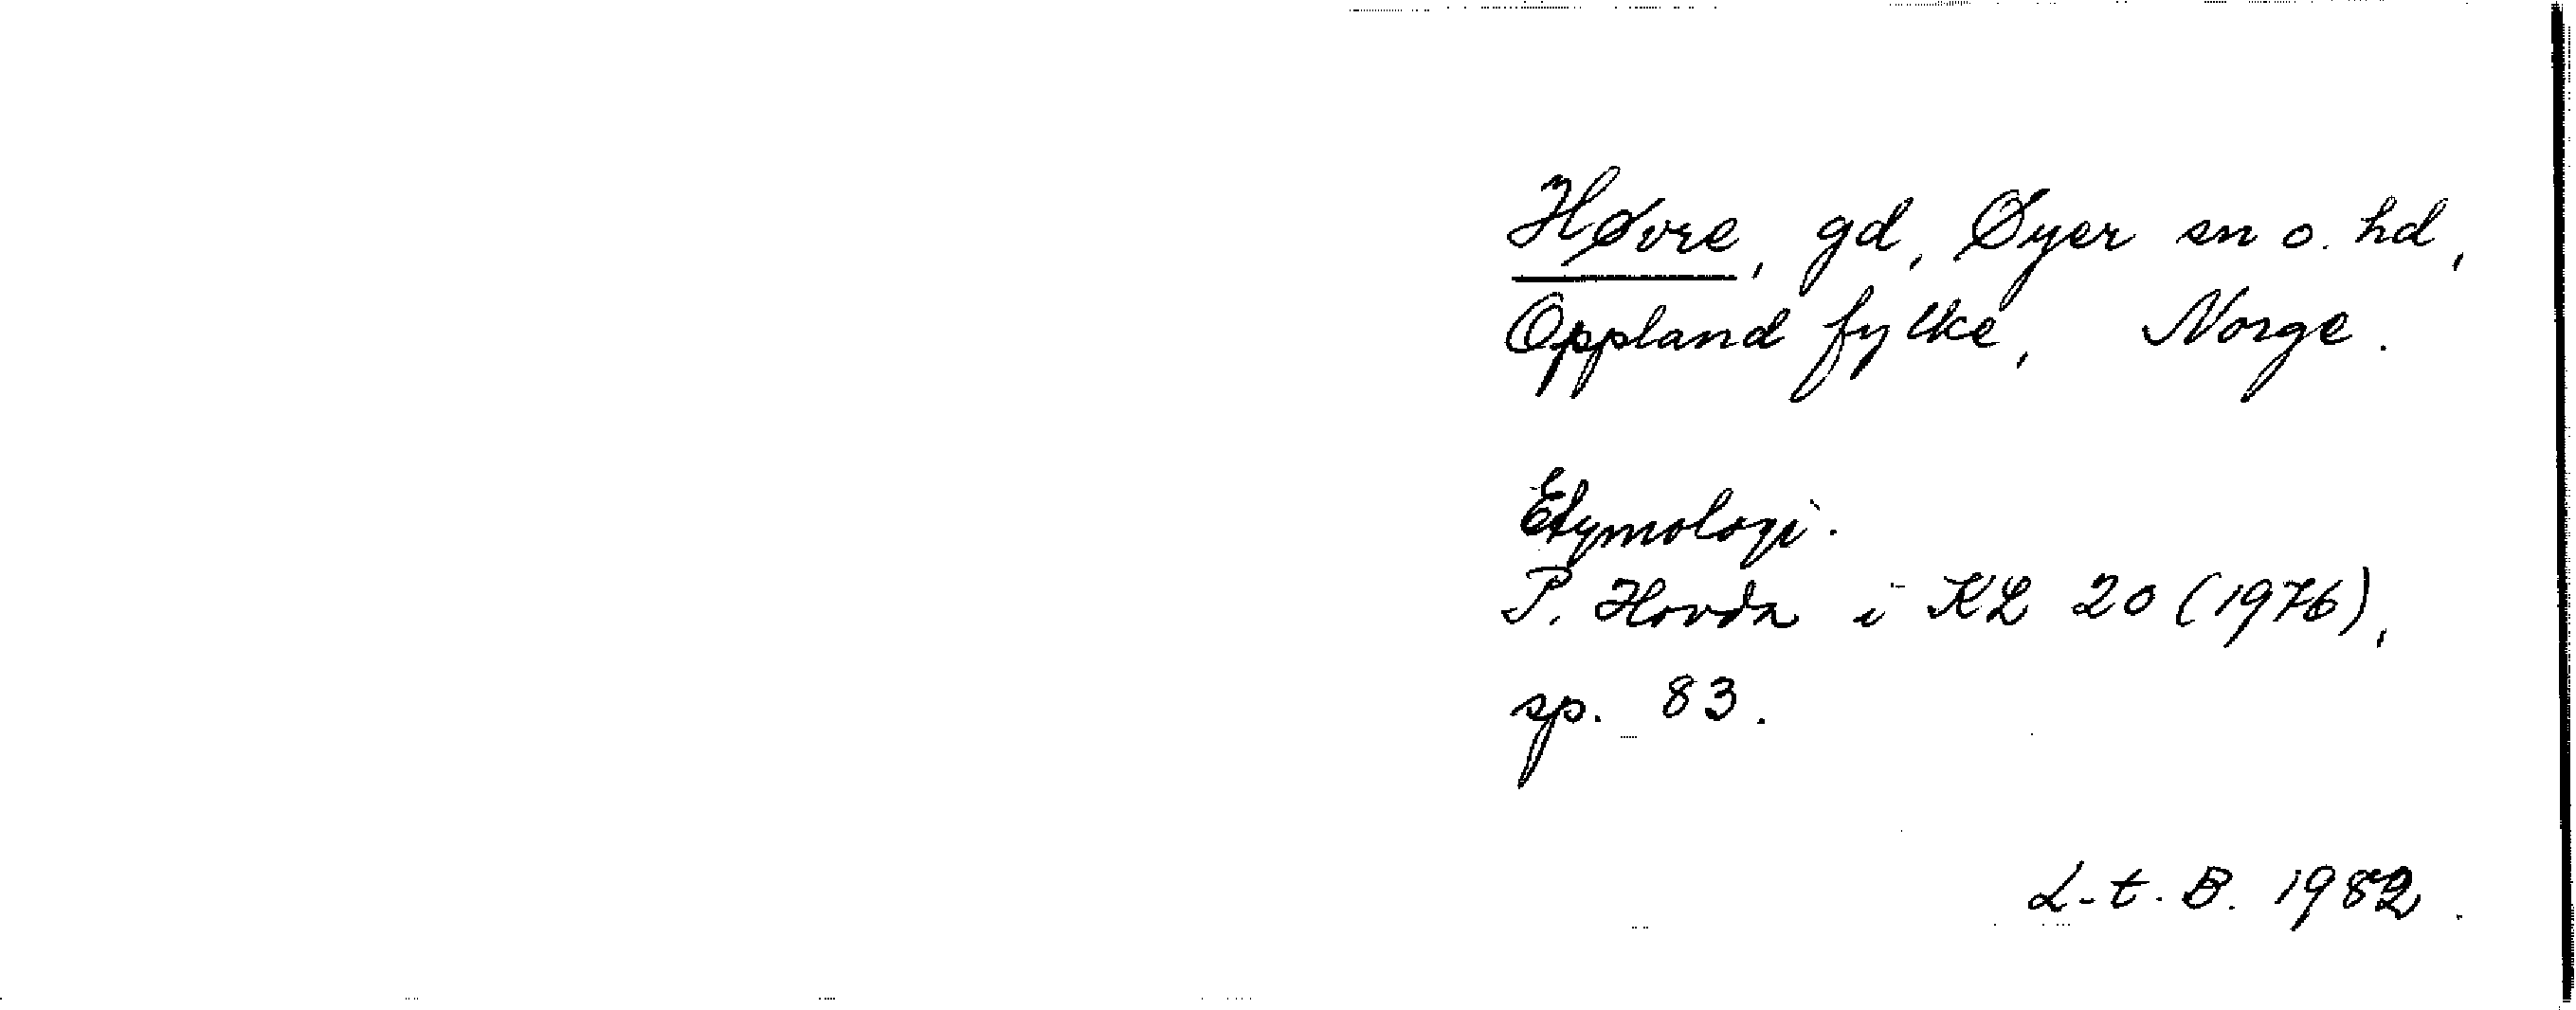 Høvre, gd, Øyer sn o. hd,
Oppland fylke, Norge.
Etymologi.
P. Hovda i KL 20 (1976),
sp. 83.
L-t. B. 1982.